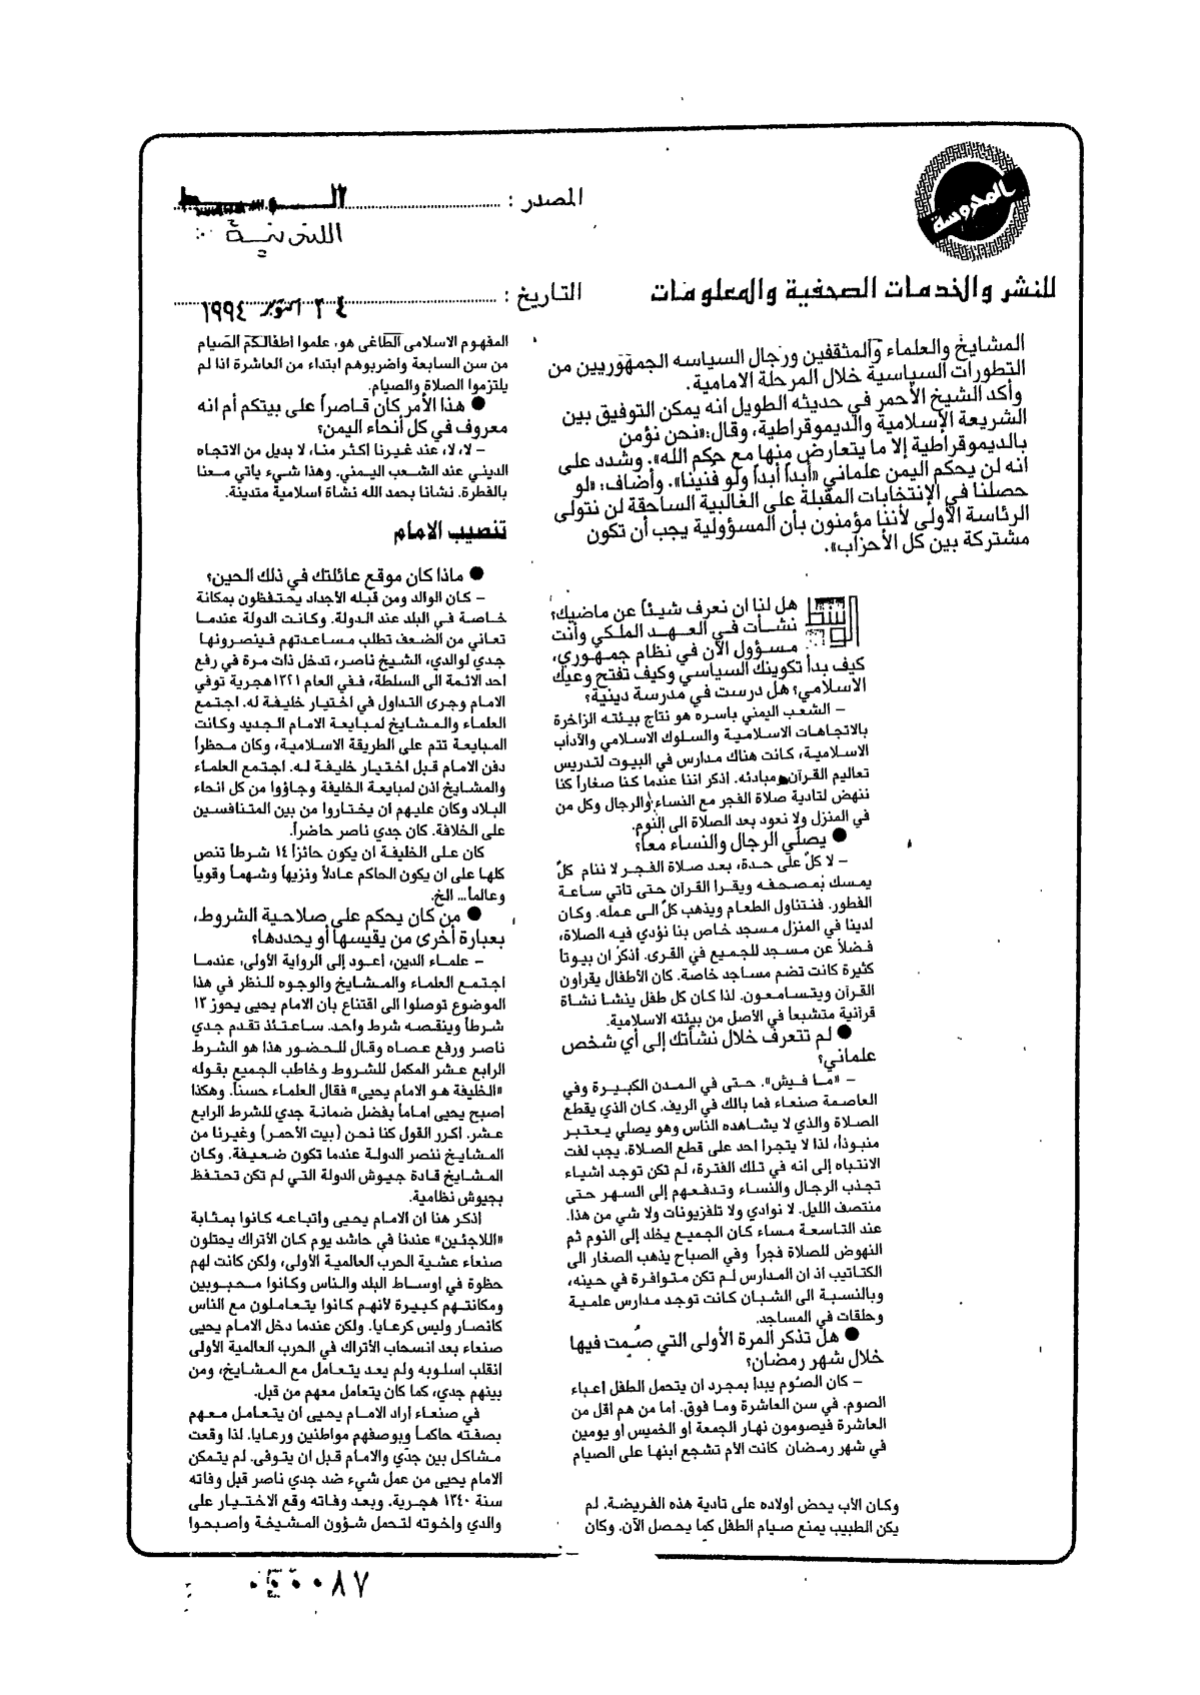 المحروسة
المصدر : الوسط
اللندنية
للنشر والخدمات الصحفية والمعلومات
التاريخ : ٢٤ اكتوبر ١٩٩٤
المشايخ والعلماء والمثقفين ورجال السياسه الجمهوريين من
التطورات السياسية خلال المرحلة الامامية.
وأكد الشيخ الأحمر في حديثه الطويل انه يمكن التوفيق بين
الشريعة الإسلامية والديموقراطية، وقال:«نحن نؤمن
بالديموقراطية إلا ما يتعارض منها مع حكم الله». وشدد على
انه لن يحكم اليمن علماني «أبداً أبداً ولو فُنينا». وأضاف: «لو
حصلنا في الإنتخابات المقبلة على الغالبية الساحقة لن نتولى
الرئاسة الأولى لأننا مؤمنون بأن المسؤولية يجب أن تكون
مشتركة بين كل الأحزاب».
الوسط
هل لنا ان نعرف شيئاً عن ماضيك؟
نشأت في العهد الملكي وأنت
مسؤول الآن في نظام جمهوري،
كيف بدأ تكوينك السياسي وكيف تفتح وعيك
الاسلامي؟ هل درست في مدرسة دينية؟
– الشعب اليمني باسره هو نتاج بيئته الزاخرة
بالاتجاهات الاسلامية والسلوك الاسلامي والآداب
الاسلامية، كانت هناك مدارس في البيوت لتدريس
تعاليم القرآن ومبادئه. اذكر اننا عندما كنا صغاراً كنا
ننهض لتادية صلاة الفجر مع النساء والرجال وكل من
في المنزل ولا نعود بعد الصلاة الى النوم.
● يصلّي الرجال والنساء معاً؟
– لا كلٌ على حدة، بعد صلاة الفجر لا ننام كلٌ
يمسك بمصحفه ويقرا القرآن حتى تاتي ساعة
الفطور. فنتناول الطعام ويذهب كلٌ الى عمله. وكان
لدينا في المنزل مسجد خاص بنا نؤدي فيه الصلاة،
فضلاً عن مسجد للجميع في القرى. أذكر ان بيوتاً
كثيرة كانت تضم مساجد خاصة. كان الأطفال يقراون
القرآن ويتسامعون. لذا كان كل طفل ينشا نشاة
قرآنية متشبعاً في الأصل من بيئته الاسلامية.
● لم تتعرف خلال نشأتك إلى أي شخص
علماني؟
– «ما فيش». حتى في المدن الكبيرة وفي
العاصمة صنعاء فما بالك في الريف. كان الذي يقطع
الصلاة والذي لا يشاهده الناس وهو يصلي يعتبر
منبوذاً، لذا لا يتجرا احد على قطع الصلاة. يجب لفت
الانتباه إلى انه في تلك الفترة، لم تكن توجد اشياء
تجذب الرجال والنساء وتدفعهم إلى السهر حتى
منتصف الليل. لا نوادي ولا تلفزيونات ولا شي من هذا.
عند التاسعة مساء كان الجميع يخلد إلى النوم ثم
النهوض للصلاة فجراً وفي الصباح يذهب الصغار الى
الكتاتيب اذ ان المدارس لم تكن متوافرة في حينه،
وبالنسبة الى الشبان كانت توجد مدارس علمية
وحلقات في المساجد.
● هل تذكر المرة الأولى التي صُمت فيها
خلال شهر رمضان؟
– كان الصوم يبدا بمجرد ان يتحمل الطفل اعباء
الصوم. في سن العاشرة وما فوق. أما من هم أقل من
العاشرة فيصومون نهار الجمعة او الخميس او يومين
في شهر رمضان كانت الأم تشجع ابنها على الصيام
وكان الأب يحض اولاده على تادية هذه الفريضة. لم
يكن الطبيب يمنع صيام الطفل كما يحصل الآن. وكان
المفهوم الاسلامي الطاغي هو، علموا اطفالكم الصيام
من سن السابعة واضربوهم ابتداء من العاشرة اذا لم
يلتزموا الصلاة والصيام.
● هذا الأمر كان قاصراً على بيتكم أم انه
معروف في كل أنحاء اليمن؟
– لا، لا، عند غيرنا اكثر منا، لا بديل من الاتجاه
الديني عند الشعب اليمني. وهذا شيء ياتي معنا
بالفطرة. نشانا بحمد الله نشاة اسلامية متدينة.
تنصيب الامام
● ماذا كان موقع عائلتك في ذلك الحين؟
– كان الوالد ومن قبله الأجداد يحتفظون بمكانة
خاصة في البلد عند الدولة. وكانت الدولة عندما
تعاني من الضعف تطلب مساعدتهم فينصرونها
جدي لوالدي، الشيخ ناصر، تدخل ذات مرة في رفع
احد الائمة الى السلطة، ففي العام ١٣٢١ هجرية توفي
الامام وجرى التداول في اختيار خليفة له. اجتمع
العلماء والمشايخ لمبايعة الامام الجديد وكانت
المبايعة تتم على الطريقة الاسلامية، وكان محظراً
دفن الامام قبل اختيار خليفة له. اجتمع العلماء
والمشايخ اذن لمبايعة الخليفة وجاؤوا من كل انحاء
البلاد وكان عليهم ان يختاروا من بين المتنافسين
على الخلافة. كان جدي ناصر حاضراً.
كان على الخليفة ان يكون حائزاً ١٤ شرطاً تنص
كلها على ان يكون الحاكم عادلاً ونزيهاً وشهماً وقوياً
وعالماً... الخ.
● من كان يحكم على صلاحية الشروط،
بعبارة أخرى من يقيسها أو يحددها؟
– علماء الدين، اعود إلى الرواية الأولى، عندما
اجتمع العلماء والمشايخ والوجوه للنظر في هذا
الموضوع توصلوا الى اقتناع بان الامام يحيى يحوز ١٣
شرطاً وينقصه شرط واحد. ساعتئذ تقدم جدي
ناصر ورفع عصاه وقال للحضور هذا هو الشرط
الرابع عشر المكمل للشروط وخاطب الجميع بقوله
«الخليفة هو الامام يحيى» فقال العلماء حسناً. وهكذا
اصبح يحيى اماماً بفضل ضمانة جدي للشرط الرابع
عشر. اكرر القول كنا نحن (بيت الأحمر) وغيرنا من
المشايخ ننصر الدولة عندما تكون ضعيفة. وكان
المشايخ قادة جيوش الدولة التي لم تكن تحتفظ
بجيوش نظامية.
اذكر هنا ان الامام يحيى واتباعه كانوا بمثابة
«اللاجئين» عندنا في حاشد يوم كان الأتراك يحتلون
صنعاء عشية الحرب العالمية الأولى، ولكن كانت لهم
حظوة في اوساط البلد والناس وكانوا محبوبين
ومكانتهم كبيرة لأنهم كانوا يتعاملون مع الناس
كانصار وليس كرعايا. ولكن عندما دخل الامام يحيى
صنعاء بعد انسحاب الأتراك في الحرب العالمية الأولى
انقلب اسلوبه ولم يعد يتعامل مع المشايخ، ومن
بينهم جدي، كما كان يتعامل معهم من قبل.
في صنعاء أراد الامام يحيى ان يتعامل معهم
بصفته حاكماً وبوصفهم مواطنين ورعايا. لذا وقعت
مشاكل بين جدّي والامام قبل ان يتوفى. لم يتمكن
الامام يحيى من عمل شيء ضد جدي ناصر قبل وفاته
سنة ١٣٤٠ هجرية. وبعد وفاته وقع الاختيار على
والدي واخوته لتحمل شؤون المشيخة واصبحوا